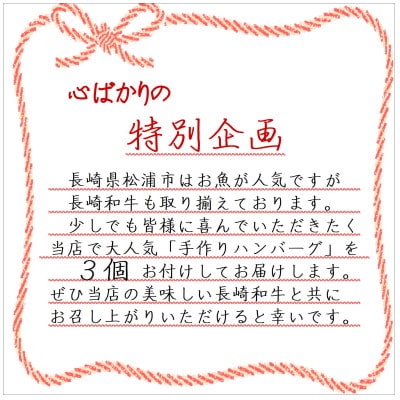 心ばかりの
特別企画
長崎県松浦市はお魚が人気ですが
長崎和牛も取り揃えております。
少しでも皆様に喜んでいただきたく
当店で大人気「手作りハンバーグ」を
３個 お付けしてお届けします。
ぜひ当店の美味しい長崎和牛と共に
お召し上がりいただけると幸いです。